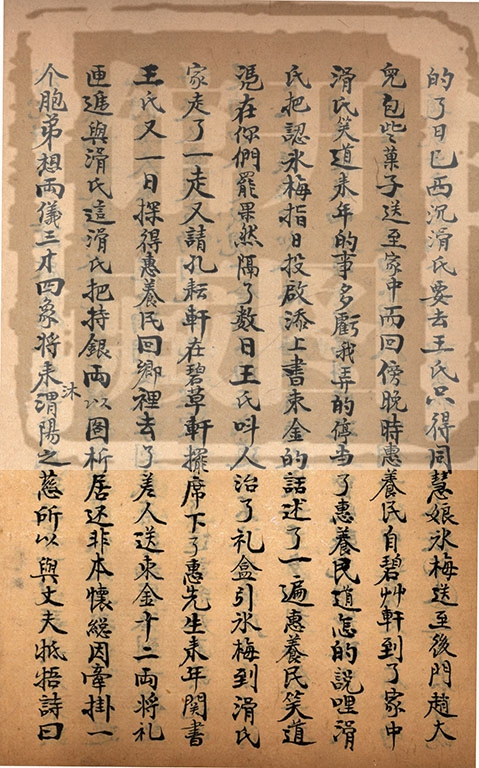 的了日已西沉滑氏要去王氏只得同慧娘氷梅送至後門趙大
兒包些菓子送至家中而回傍晩時惠養民自碧艸軒到了家中
滑氏笑道来年的事多虧我弄的停当了惠養民道怎的説哩滑
氏把認氷梅指日投啟添上書束金的話述了一遍惠養民笑道
凴在你們罷果然隔了数日王氏呌人治了礼盒引氷梅到滑氏
家走了一走又請孔耘軒在碧草軒擺席下了惠先生来年関書
王氏又一日探得惠養民回鄉裡去了差人送束金十二両将礼
匣遞與滑氏這滑氏把持銀両以圖析居还非本懷総因牽掛一
个胞弟想両儀三才四象将来沐渭陽之慈所以與丈夫牴牾詩曰